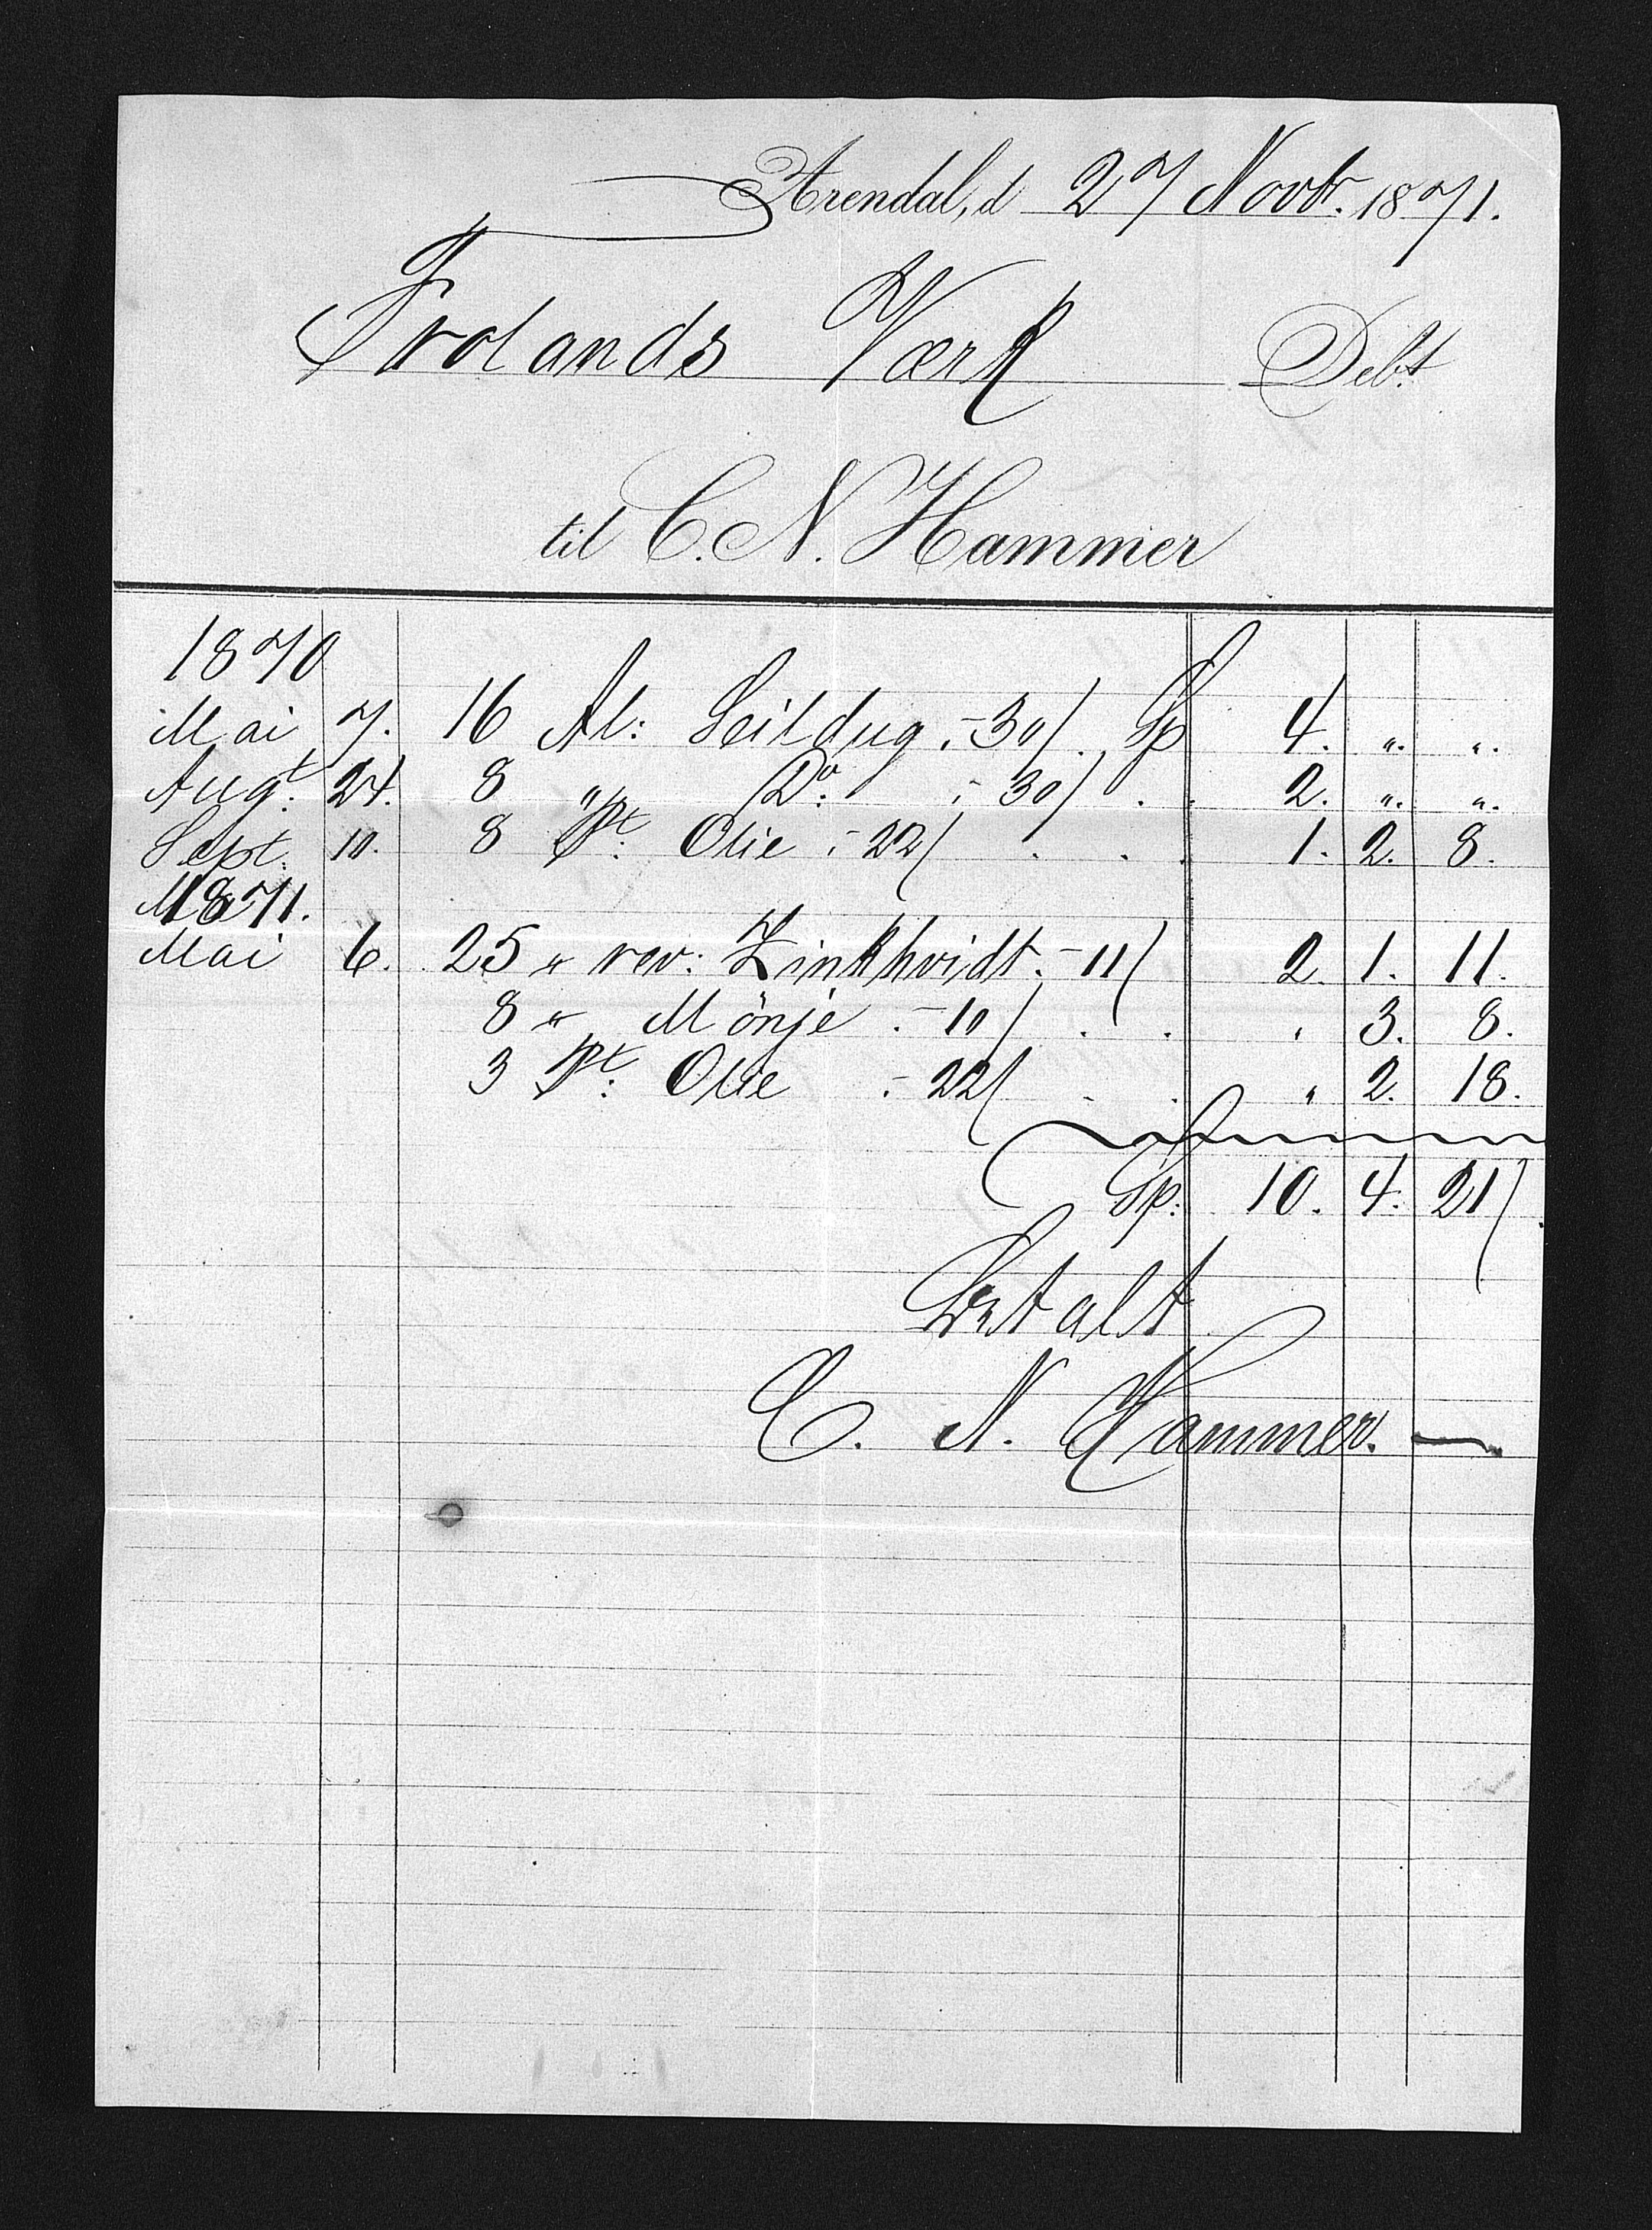 Arendal, d 27 Novbr. 1871.
Frolands Værk Debt
til C. N. Hammer
1870
Mai 7. 16 Al: Seildug :-30/. Sp 4. ". ".
Augt: 24. 8 " Do: :- 30/ . . 2. ". ".
Sept. 10. 8 Pt: Olie :- 22/ . . . 1. 2. 8.
1871.
Mai 6. 25 " rev: Zinkhvidt :- 11/ 2. 1. 11.
8 " Mönje :- 10/ . . " 3. 8.
3 Pt: Olie :- 22/ . . " 2. 18.
Sp: 10. 4. 21/.
Betalt
C. N. Hammer.